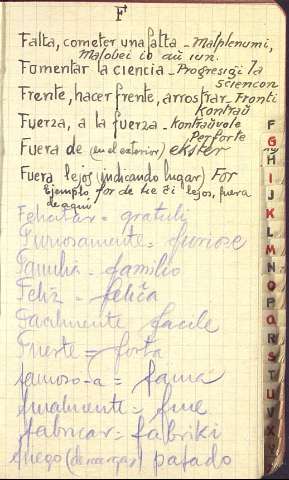 F
Falta, cometer una falta - Malplenumi,
malobei io aŭ iun.
Fomentar la ciencia - Progresigi la
sciencon
Frente, hacer frente, arrostrar - Fronti
kontraŭ
Fuerza, a la fuerza - kontraŭvole
perforte
Fuera de (en el exterior) ekster
Fuera lejos (indicando lugar) For
Ejemplo, for de tie ĉi lejos, fuera
de aqui
Felicitar = gratuli
Furiosamente = furioze
Familia = familio
Feliz = feliĉa
Facilmente facile
Fuerte = forta
famoso-a = fama
finalmente = fine
fabricar = fabriki
fuego (de armas) pafado
F
G
H
I
J
K
L
M
N
O
P
Q
R
S
T
U
V
X